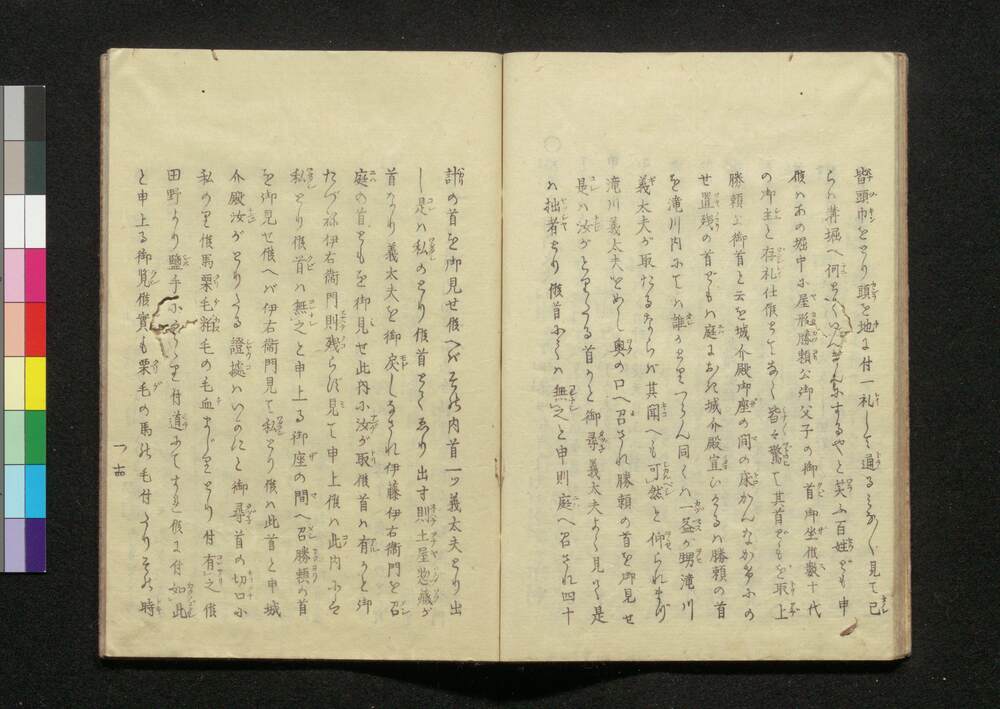 皆頭巾をとり頭を地に付一礼して通るみな〳〵見て己
らハ溝堀へ何
候ハあの堀中に屋形勝頼公御父子の御首御坐候数十代
の御主と存礼仕候とて皆々驚て其首どもを取上
勝頼公御首と云を城介殿御座の間の床かんなかけの
せ置残の首どもハ庭におれ城介殿宣ひけるハ勝頼の首
を滝川内にてハ誰かとりつらん同くハ一益が甥滝川
義太夫が取たるならバ其聞へも可然と仰られまづ
滝川義太夫をめし奥の口へ召され勝頼の首を御見せ
是ハ汝がとりたる首かと御尋義太夫よく見りく是
ハ拙者とり候首にてハ無之と申則庭へ召され四十
計の首を御見せ候へバ其内首一ッ義太夫とり出
し是ハ私のとり候首とてゑり出す則土屋惣蔵が
首なり義太夫を御戻しなされ伊藤伊右衛門を召
庭の首ともを御見せ此内に汝が取候首ハ有かと御
たづね伊右衛門則残らず見て申上候ハ此内にハ
私とり候首ハ無之と申上る御座の間へ召勝頼の首
を御見せ候へバ伊右衛門見て私とり候ハ此首と申城
介殿汝がとりたる證拠ハいかにと御尋首の切口に
私のり候馬栗毛粕毛の毛血まじりとり付有之候
田野より鹽手に付道にてすれ候に付如此
と申上る御覧候実も栗毛の馬の毛付たりその時